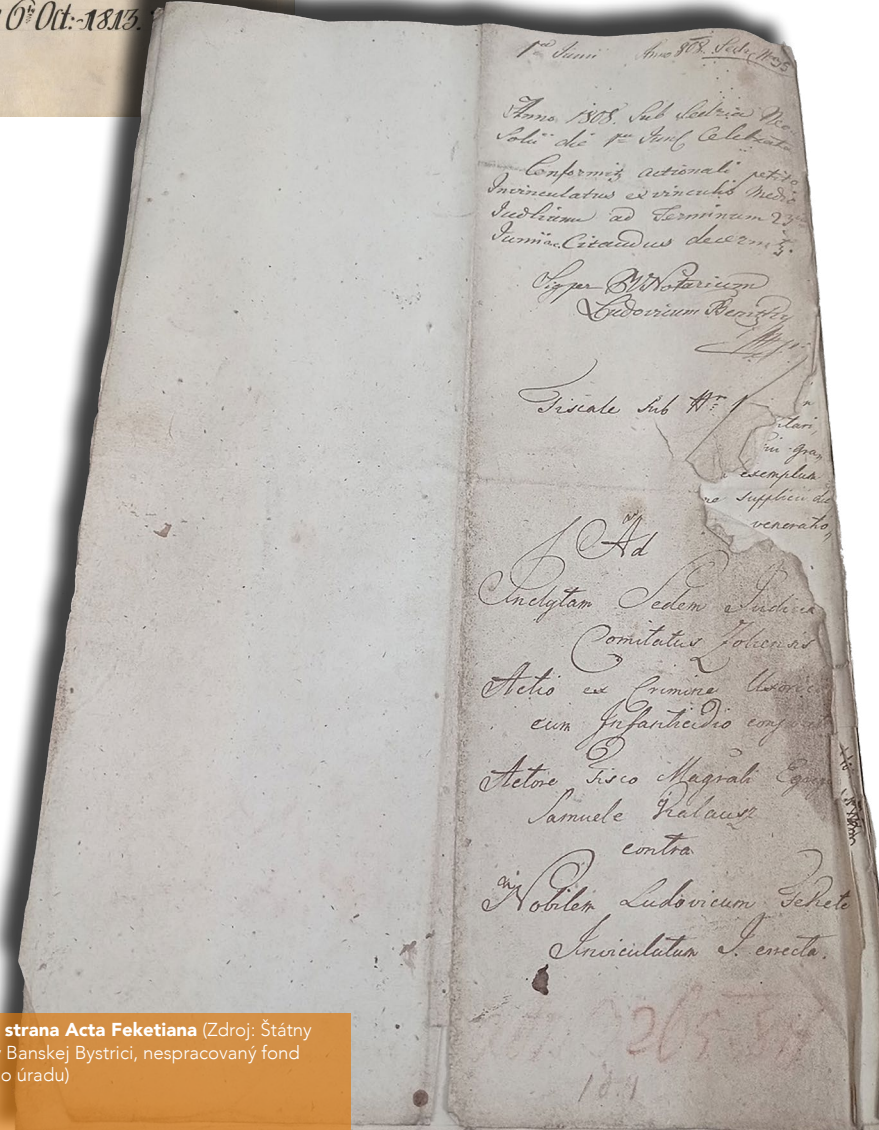 6th Oct: 1813.
1ma Junii Anno 808 Sedr. Nro 35
Anno 1808. Sub Sedria Neo
Solii die 1ma Junii Celebrata
Conformiter actionali petito
Invinculatus ex vinculis medio
Judlium ad Terminum 23
Junii a.c. Citandus decernitur.
Sig per V Notarium
Ludovicum Beniczky
Fiscale sub Nr: 1
itari
gra
exemplum
re supplicii
veneratio
Ad
Inclytam Sedem Judicia
Comitatus Zoliensis
Actio ex Crimine Uxorici
cum Infanticidio conjunct
Actore Fisco Magrali Egregi
Samuele Kalausz
contra
Nobilem Ludovicum Fekete
Inviculatum I. erecta.
strana Acta Feketiana (Zdroj: Štátny
v Banskej Bystrici, nespracovaný fond
o úradu)